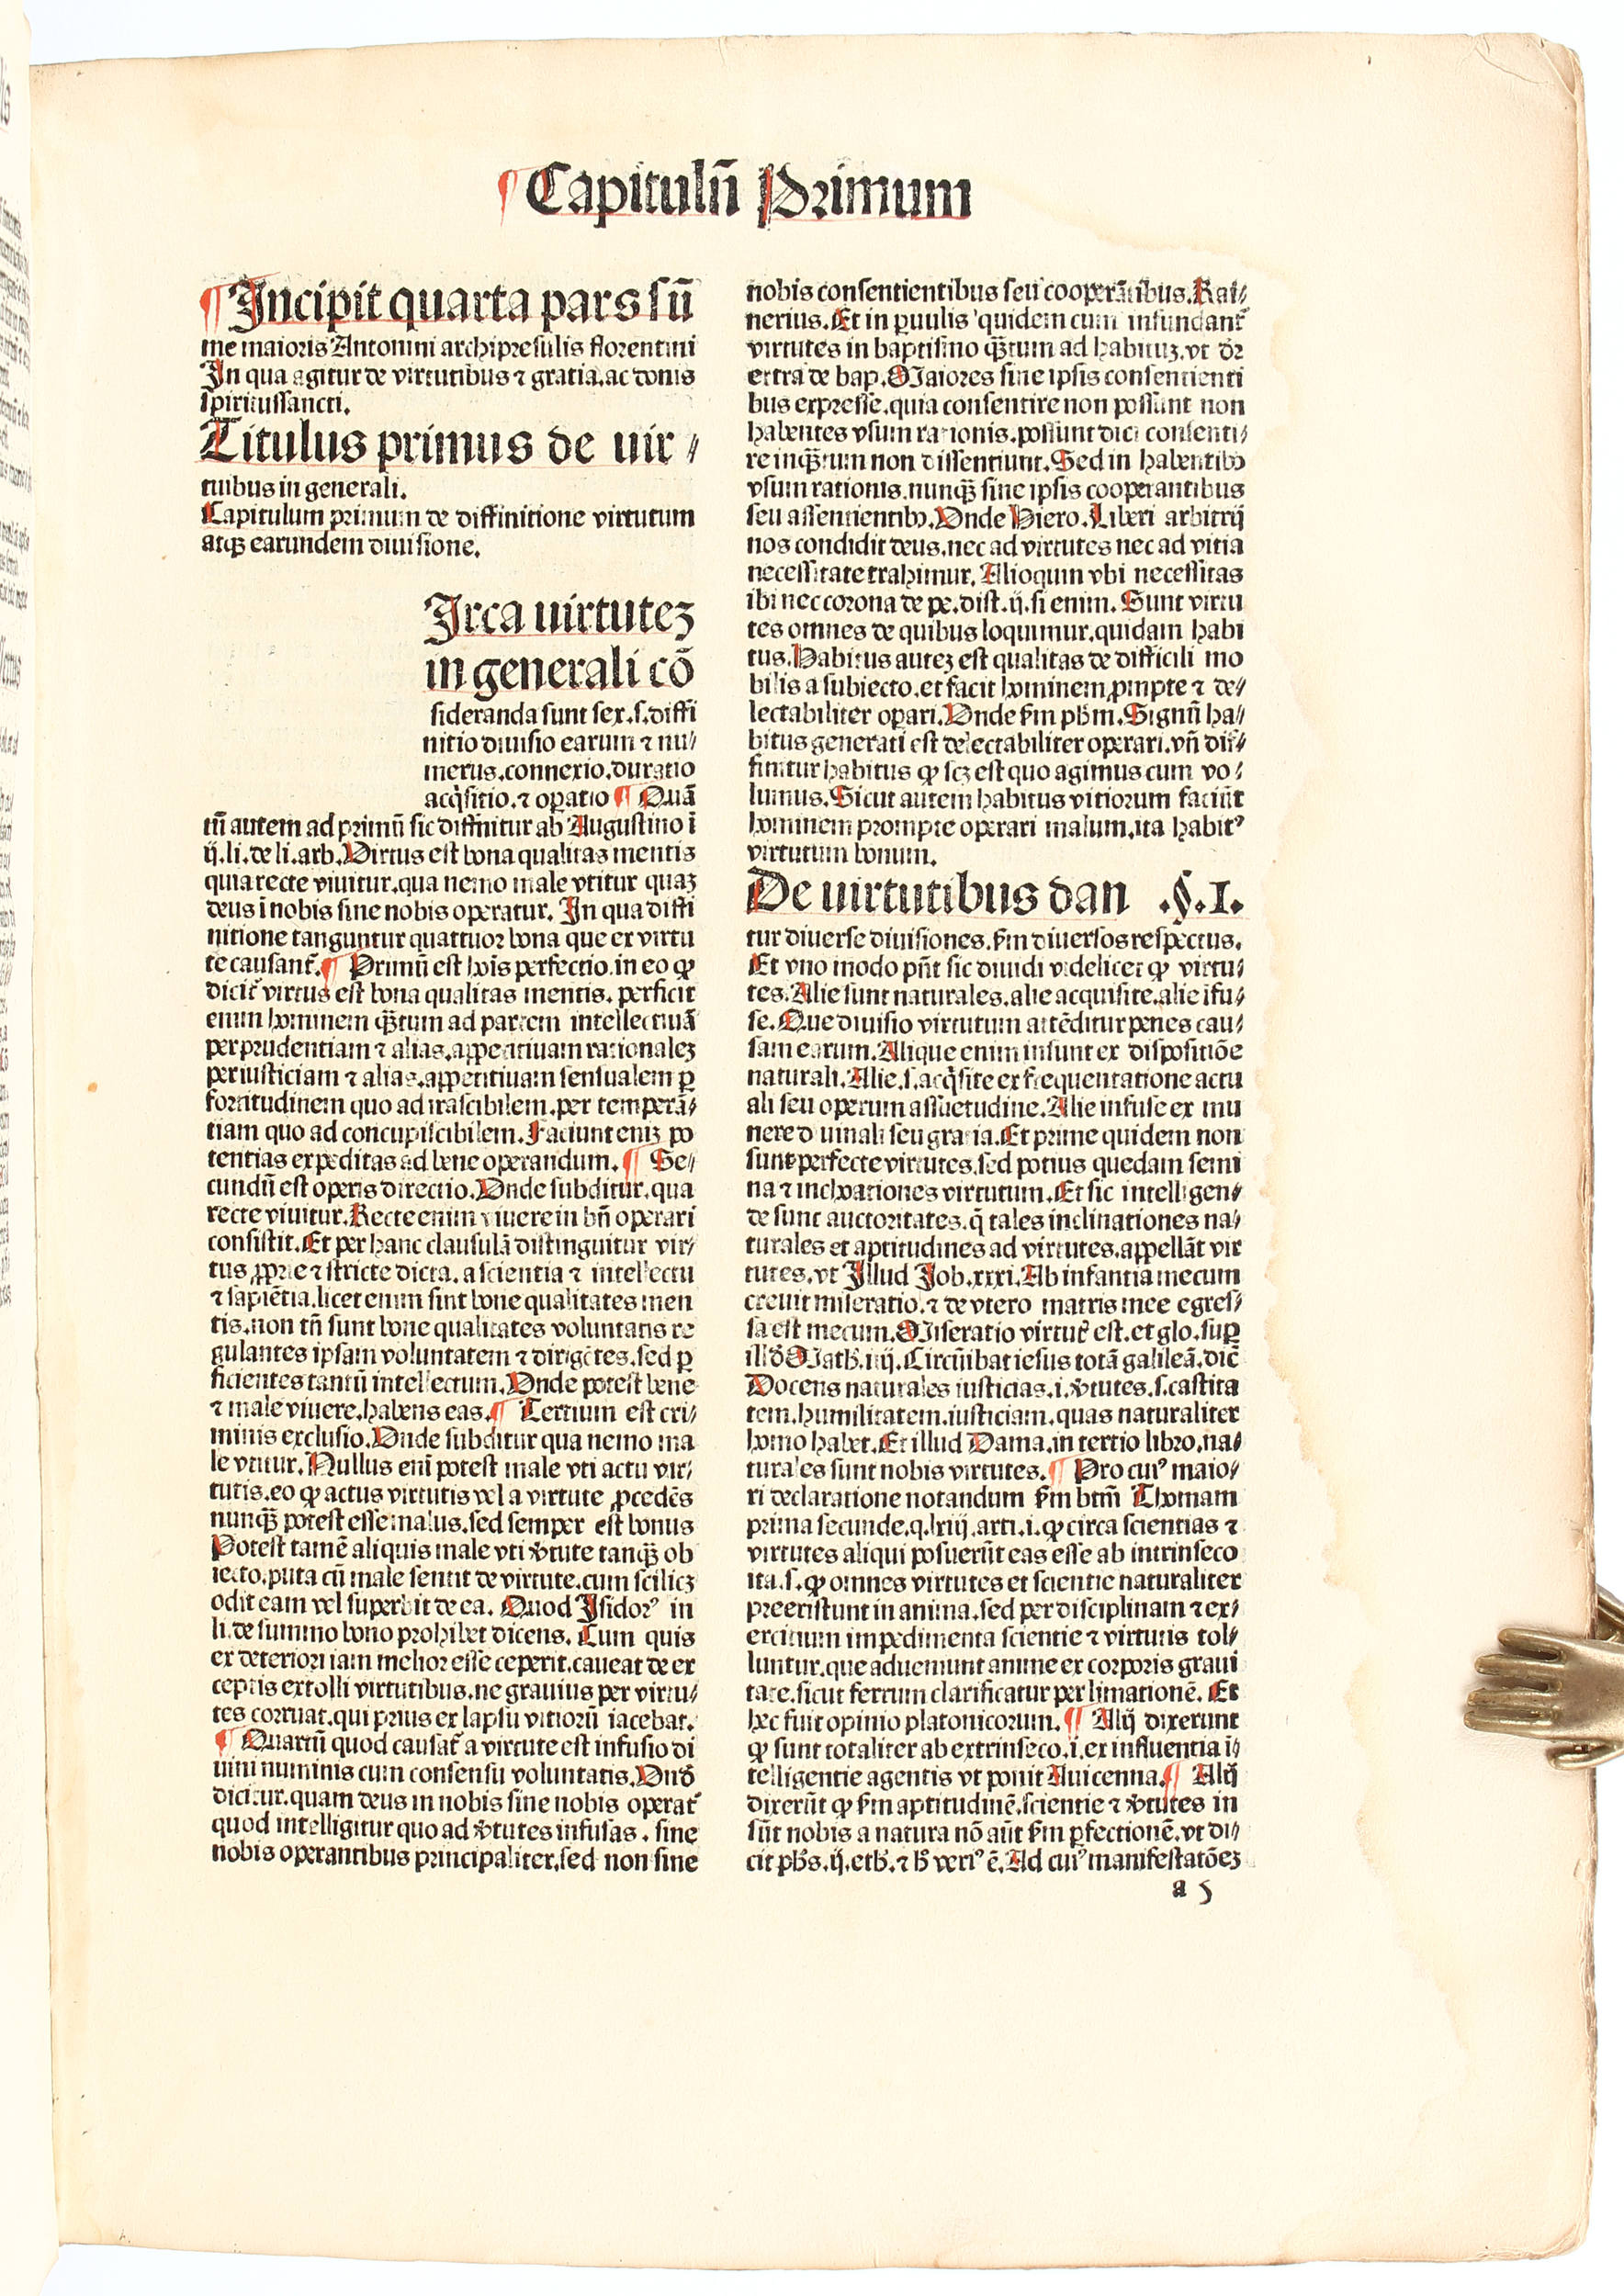 ¶ Capitulū Primum
¶ Incipit quarta pars sū
me maioris Antonini archipresulis florentini
In qua agitur de virtutibus ⁊ gratia. ac donis
spiritussancti.
Titulus primus de uir⸗
tutibus in generali.
Capitulum primum de diffinitione virtutum
atqꝫ earundem diuisione.
Irca uirtutez
in generali cō
sideranda sunt sex. s. diffi
nitio diuisio earum ⁊ nu⸗
merus. connexio. duratio
acq̇sitio. ⁊ oꝑatio ¶ Quā
tū autem ad primū sic diffinitur ab Augustino ī
ij. li. de li. arb. Virtus est bona qualitas mentis
qua recte viuitur. qua nemo male vtitur quaꝫ
deus ī nobis sine nobis operatur. In qua diffi
nitione tanguntur quattuor bona que ex virtu
te causant᷑. ¶ Primū est hoīs perfectio. in eo ꝙ
dicit᷑ virtus est bona qualitas mentis. perficit
enim hominem qꝫ̄tum ad partem intellectiuā
per prudentiam ⁊ alias. appetitiuam rationaleꝫ
per iusticiam ⁊ alias. appetitiuam sensualem ꝑ
fortitudinem quo ad irascibilem. per temperā⸗
tiam quo ad concupiscibilem. Faciunt eniꝫ po
tentias expeditas ad bene operandum. ¶ Se⸗
cundū est operis directio. Vnde subditur. qua
recte viuitur. Recte enim viuere in bn̄ operari
consistit. Et per hanc clausulā distinguitur vir⸗
tus ꝓprie ⁊ stricte dicta. a scientia ⁊ intellectu
⁊ sapiētia. licet enim sint bone qualitates men
tis. non tn̄ sunt bone qualitates voluntatis re
gulantes ipsam voluntatem ⁊ dirigētes. sed ꝑ
ficientes tantū intellectum. Vnde potest bene
⁊ male viuere. habens eas. ¶ Tertium est cri⸗
minis exclusio. Vnde subditur qua nemo ma
le vtitur. Nullus enī potest male vti actu vir⸗
tutis. eo ꝙ actus virtutis vel a virtute ꝓcedēs
nunqꝫ̄ potest esse malus. sed semper est bonus
Potest tamē aliquis male vti v̓tute tanqꝫ̄ ob
iecto. puta cū male sentit de virtute. cum scilicꝫ
odit eam vel superbit de ea. Quod Isidorꝰ in
li. de summo bono prohibet dicens. Cum quis
ex deteriori iam melior esse ceperit. caueat de ex
ceptis extolli virtutibus. ne grauius per virtu⸗
tes corruat. qui prius ex lapsu vitiorū iacebat.
¶ Quartū quod causat᷑ a virtute est infusio di
uini numinis cum consensu voluntatis. Vnd̓
dicitur. quam deus in nobis sine nobis operat᷑
quod intelligitur quo ad v̓tutes infusas. sine
nobis operantibus principaliter. sed non sine
nobis consentientibus seu cooperātibus. Rai⸗
nerius. Et in ꝑuulis quidem cum infundant᷑
virtutes in baptismo qꝫ̄tum ad habituꝫ. vt dr̄
extra de bap. Maiores sine ipsis consentienti
bus expresse. quia consentire non possunt non
habentes vsum rationis. possunt dici consenti⸗
re inqꝫ̄tum non dissentiunt. Sed in habentibꝰ
vsum rationis. nunqꝫ̄ sine ipsis cooperantibus
seu assentientibꝰ. Vnde Hiero. Liberi arbitrij
nos condidit deus. nec ad virtutes nec ad vitia
necessitate trahimur. Alioquin vbi necessitas
ibi nec corona de pe. dist. ij. si enim. Sunt virtu
tes omnes de quibus loquimur. quidam habi
tus. Habitus auteꝫ est qualitas de difficili mo
bilis a subiecto. et facit hominem ꝓmpte ⁊ de⸗
lectabiliter oꝑari. Vnde ẜm pb̄m. Signū ha⸗
bitus generati est delectabiliter operari. vn̄ dif⸗
finitur habitus ꝙ scꝫ est quo agimus cum vo⸗
lumus. Sicut autem habitus vitiorum faciūt
hominem prompte operari malum. ita habitꝰ
virtutum bonum.
De uirtutibus dan .§.I.
tur diuerse diuisiones. ẜm diuersos respectus.
Et vno modo pn̄t sic diuidi videlicet ꝙ virtu⸗
tes. Alie sunt naturales. alie acquisite. alie ifu⸗
se. Que diuisio virtutum attēditur penes cau⸗
sam earum. Alique enim insunt ex dispositiōe
naturali. Alie. s. acq̇site ex frequentatione actu
ali seu operum assuetudine. Alie infuse ex mu
nere diuinali seu gratia. Et prime quidem non
sunt perfecte virtutes. sed potius quedam semi
na ⁊ inchoationes virtutum. Et sic intelligen⸗
de sunt auctoritates. q̄ tales inclinationes na⸗
turales et aptitudines ad virtutes. appellāt vir
tutes. vt Illud Job. xxxi. Ab infantia mecum
creuit miseratio. ⁊ de vtero matris mee egres⸗
sa est mecum. Miseratio virtut᷑ est. et glo. suꝑ
illd̓ Math. iiij. Circūibat iesus totā galileā. dic̄
Docens naturales iusticias. i. v̓tutes. s. castita
tem. humilitatem. iusticiam. quas naturaliter
homo habet. Et illud Dama. in tertio libro. na⸗
turales sunt nobis virtutes. ¶ Pro cuiꝰ maio⸗
ri declaratione notandum ẜm btm̄ Thomam
prima secunde. q. lxiij. arti. i. ꝙ circa scientias ⁊
virtutes aliqui posuerūt eas esse ab intrinseco
ita. s. ꝙ omnes virtutes et scientie naturaliter
preexistunt in anima. sed per disciplinam ⁊ ex⸗
ercitium impedimenta scientie ⁊ virtutis tol⸗
luntur. que adueniunt anime ex corporis graui
tate. sicut ferrum clarificatur per limationē. Et
hec fuit opinio platonicorum. ¶ Alij dixerunt
ꝙ sunt totaliter ab extrinseco. i. ex influentia ī⸗
telligentie agentis vt ponit Auicenna. ¶ Alij
dixerūt ꝙ ẜm aptitudinē. scientie ⁊ v̓tutes in
sūt nobis a natura nō aūt ẜm ꝑfectionē. vt di⸗
cit pb̄s. ij. etb̄. ⁊ b̄ veriꝰ ē. Ad cuiꝰ manifestatōeꝫ
a 5